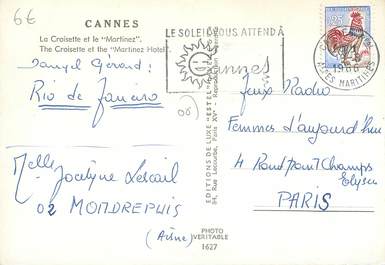 6€
CANNES
La Croisette et le "Martinez".
The Croisette et the "Martinez Hotel".
Samuel Gérard:
Rio de Janeiro
Melle Jocelyne Lescail
02 MONDREPUIS
(Aisne)
EDITIONS DE LUXE "ESTEL"
84, Rue Lecourbe, Paris XVe - Reproduction
PHOTO
VERITABLE
1627
LE SOLEIL VOUS ATTEND À
Cannes
0,25
1966
ALPES MARITIMES
Jeux Radio
Femmes d'aujourd'hui
4 Rond Point Champs
Elysées
PARIS